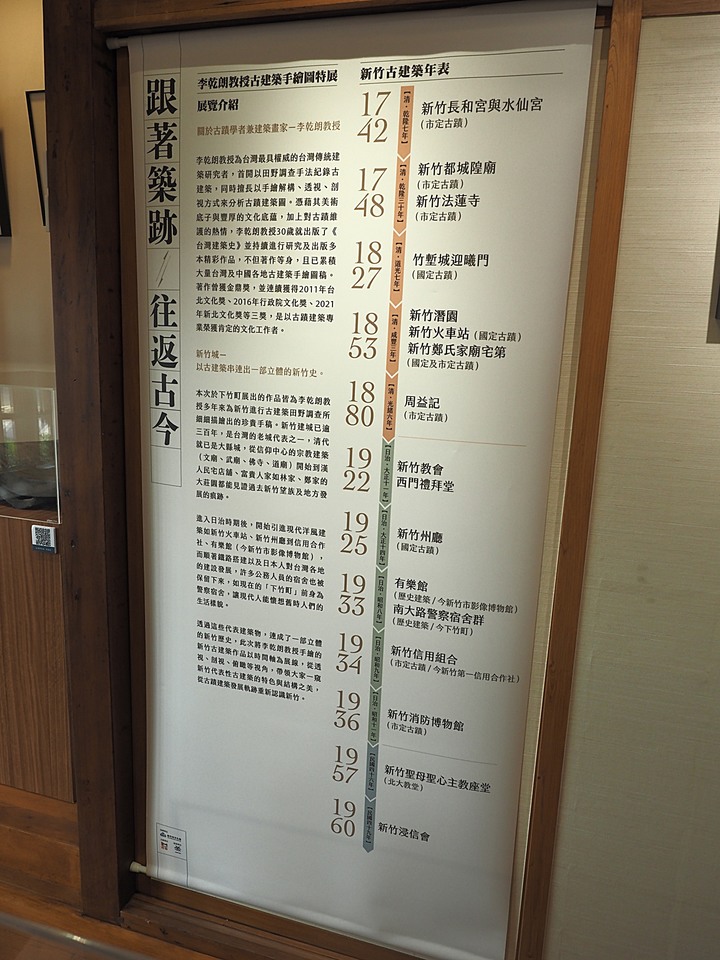 跟著築跡//往返古今
李乾朗教授古建築手繪圖特展
展覽介紹
關於古蹟學者兼建築畫家－李乾朗教授
李乾朗教授為台灣最具權威的台灣傳統建
築研究者，首開以田野調查手法紀錄古
建築，同時擅長以手繪解構、透視、剖
視方式來分析古蹟建築圖。憑藉其美術
底子與豐厚的文化底蘊，加上對古蹟維
護的熱情，李乾朗教授30歲就出版了《
台灣建築史》並持續進行研究及出版多
本精彩作品，不但著作等身，且已累積
大量台灣及中國各地古建築手繪圖稿。
著作曾獲金鼎獎，並連續獲得2011年台
北文化獎、2016年行政院文化獎、2021
年新北文化獎等三獎，是以古蹟建築專
業榮獲肯定的文化工作者。
新竹城－
以古建築串連出一部立體的新竹史。
本次於下竹町展出的作品皆為李乾朗教
授多年來為新竹進行古建築田野調查所
細細描繪出的珍貴手稿。新竹建城已逾
三百年，是台灣的老城代表之一，清代
就已是大縣城，從信仰中心的宗教建築
（文廟、武廟、佛寺、道廟）開始到漢
人民宅店舖、富貴人家如林家、鄭家的
大莊園都能見證過去新竹望族及地方發
展的痕跡。
進入日治時期後，開始引進現代洋風建
築如新竹火車站、新竹州廳到信用合作
社、有樂館（今新竹市影像博物館），
而順著鐵路搭建以及日本人對台灣各地
的建設發展，許多公務人員的宿舍也被
保留下來，如現在的「下竹町」前身為
警察宿舍，讓現代人能懷想舊時人們的
生活樣貌。
透過這些代表建築物，連成了一部立體
的新竹歷史，此次將李乾朗教授手繪的
新竹古建築作品以時間軸為展線，從透
視、剖視、俯瞰等視角，帶領大家一窺
新竹代表性古建築的特色與結構之美，
從古建築發展軌跡重新認識新竹。
新竹古建築年表
1742
【清・乾隆七年】
新竹長和宮與水仙宮
（市定古蹟）
1748
【清・乾隆三十年】
新竹都城隍廟
（市定古蹟）
新竹法蓮寺
（市定古蹟）
1827
【清・道光七年】
竹塹城迎曦門
（國定古蹟）
1853
【清・咸豐三年】
新竹潛園
新竹火車站（國定古蹟）
新竹鄭氏家廟宅第
（國定及市定古蹟）
1880
【清・光緒六年】
周益記
（市定古蹟）
1922
【日治・大正十一年】
新竹教會
西門禮拜堂
1925
【日治・大正十四年】
新竹州廳
（國定古蹟）
1933
【日治・昭和八年】
有樂館
（歷史建築 / 今新竹市影像博物館）
南大路警察宿舍群
（歷史建築 / 今下竹町）
1934
【日治・昭和九年】
新竹信用組合
（市定古蹟 / 今新竹第一信用合作社）
1936
【日治・昭和十一年】
新竹消防博物館
（市定古蹟）
1957
【民國四十六年】
新竹聖母聖心主教座堂
（北大教堂）
1960
【民國四十九年】
新竹浸信會